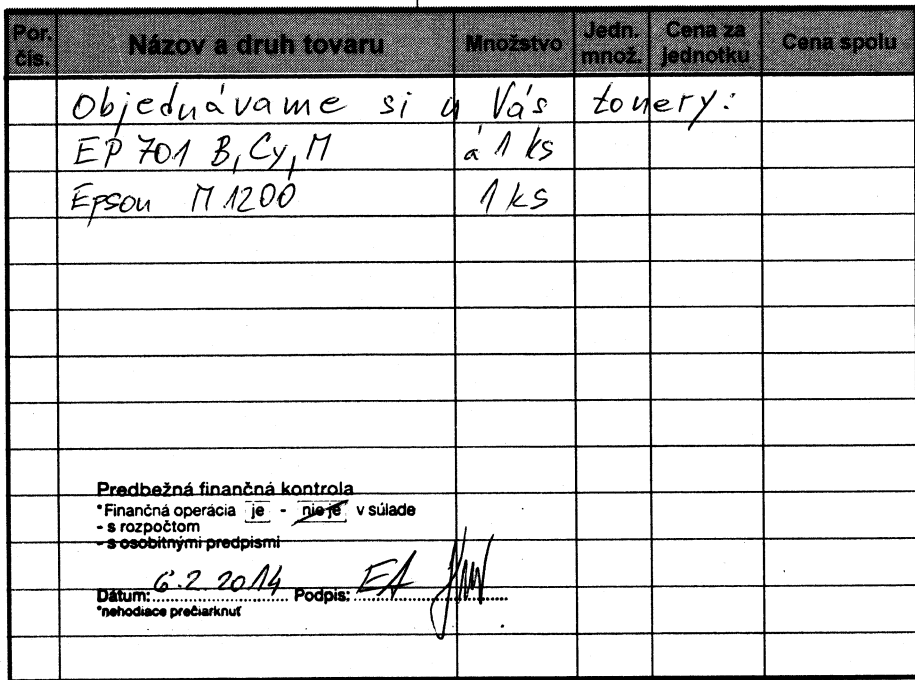 Por. čís. Názov a druh tovaru Množstvo Jedn. množ. Cena za jednotku Cena spolu
Objednávame si u Vás tonery:
EP 701 B, Cy, M á 1 ks
Epson M 1200 1 ks
Predbežná finančná kontrola
*Finančná operácia je - nie je v súlade
- s rozpočtom
- s osobitnými predpismi
Dátum: 6.2.2014 Podpis: EA
*nehodiace prečiarknuť